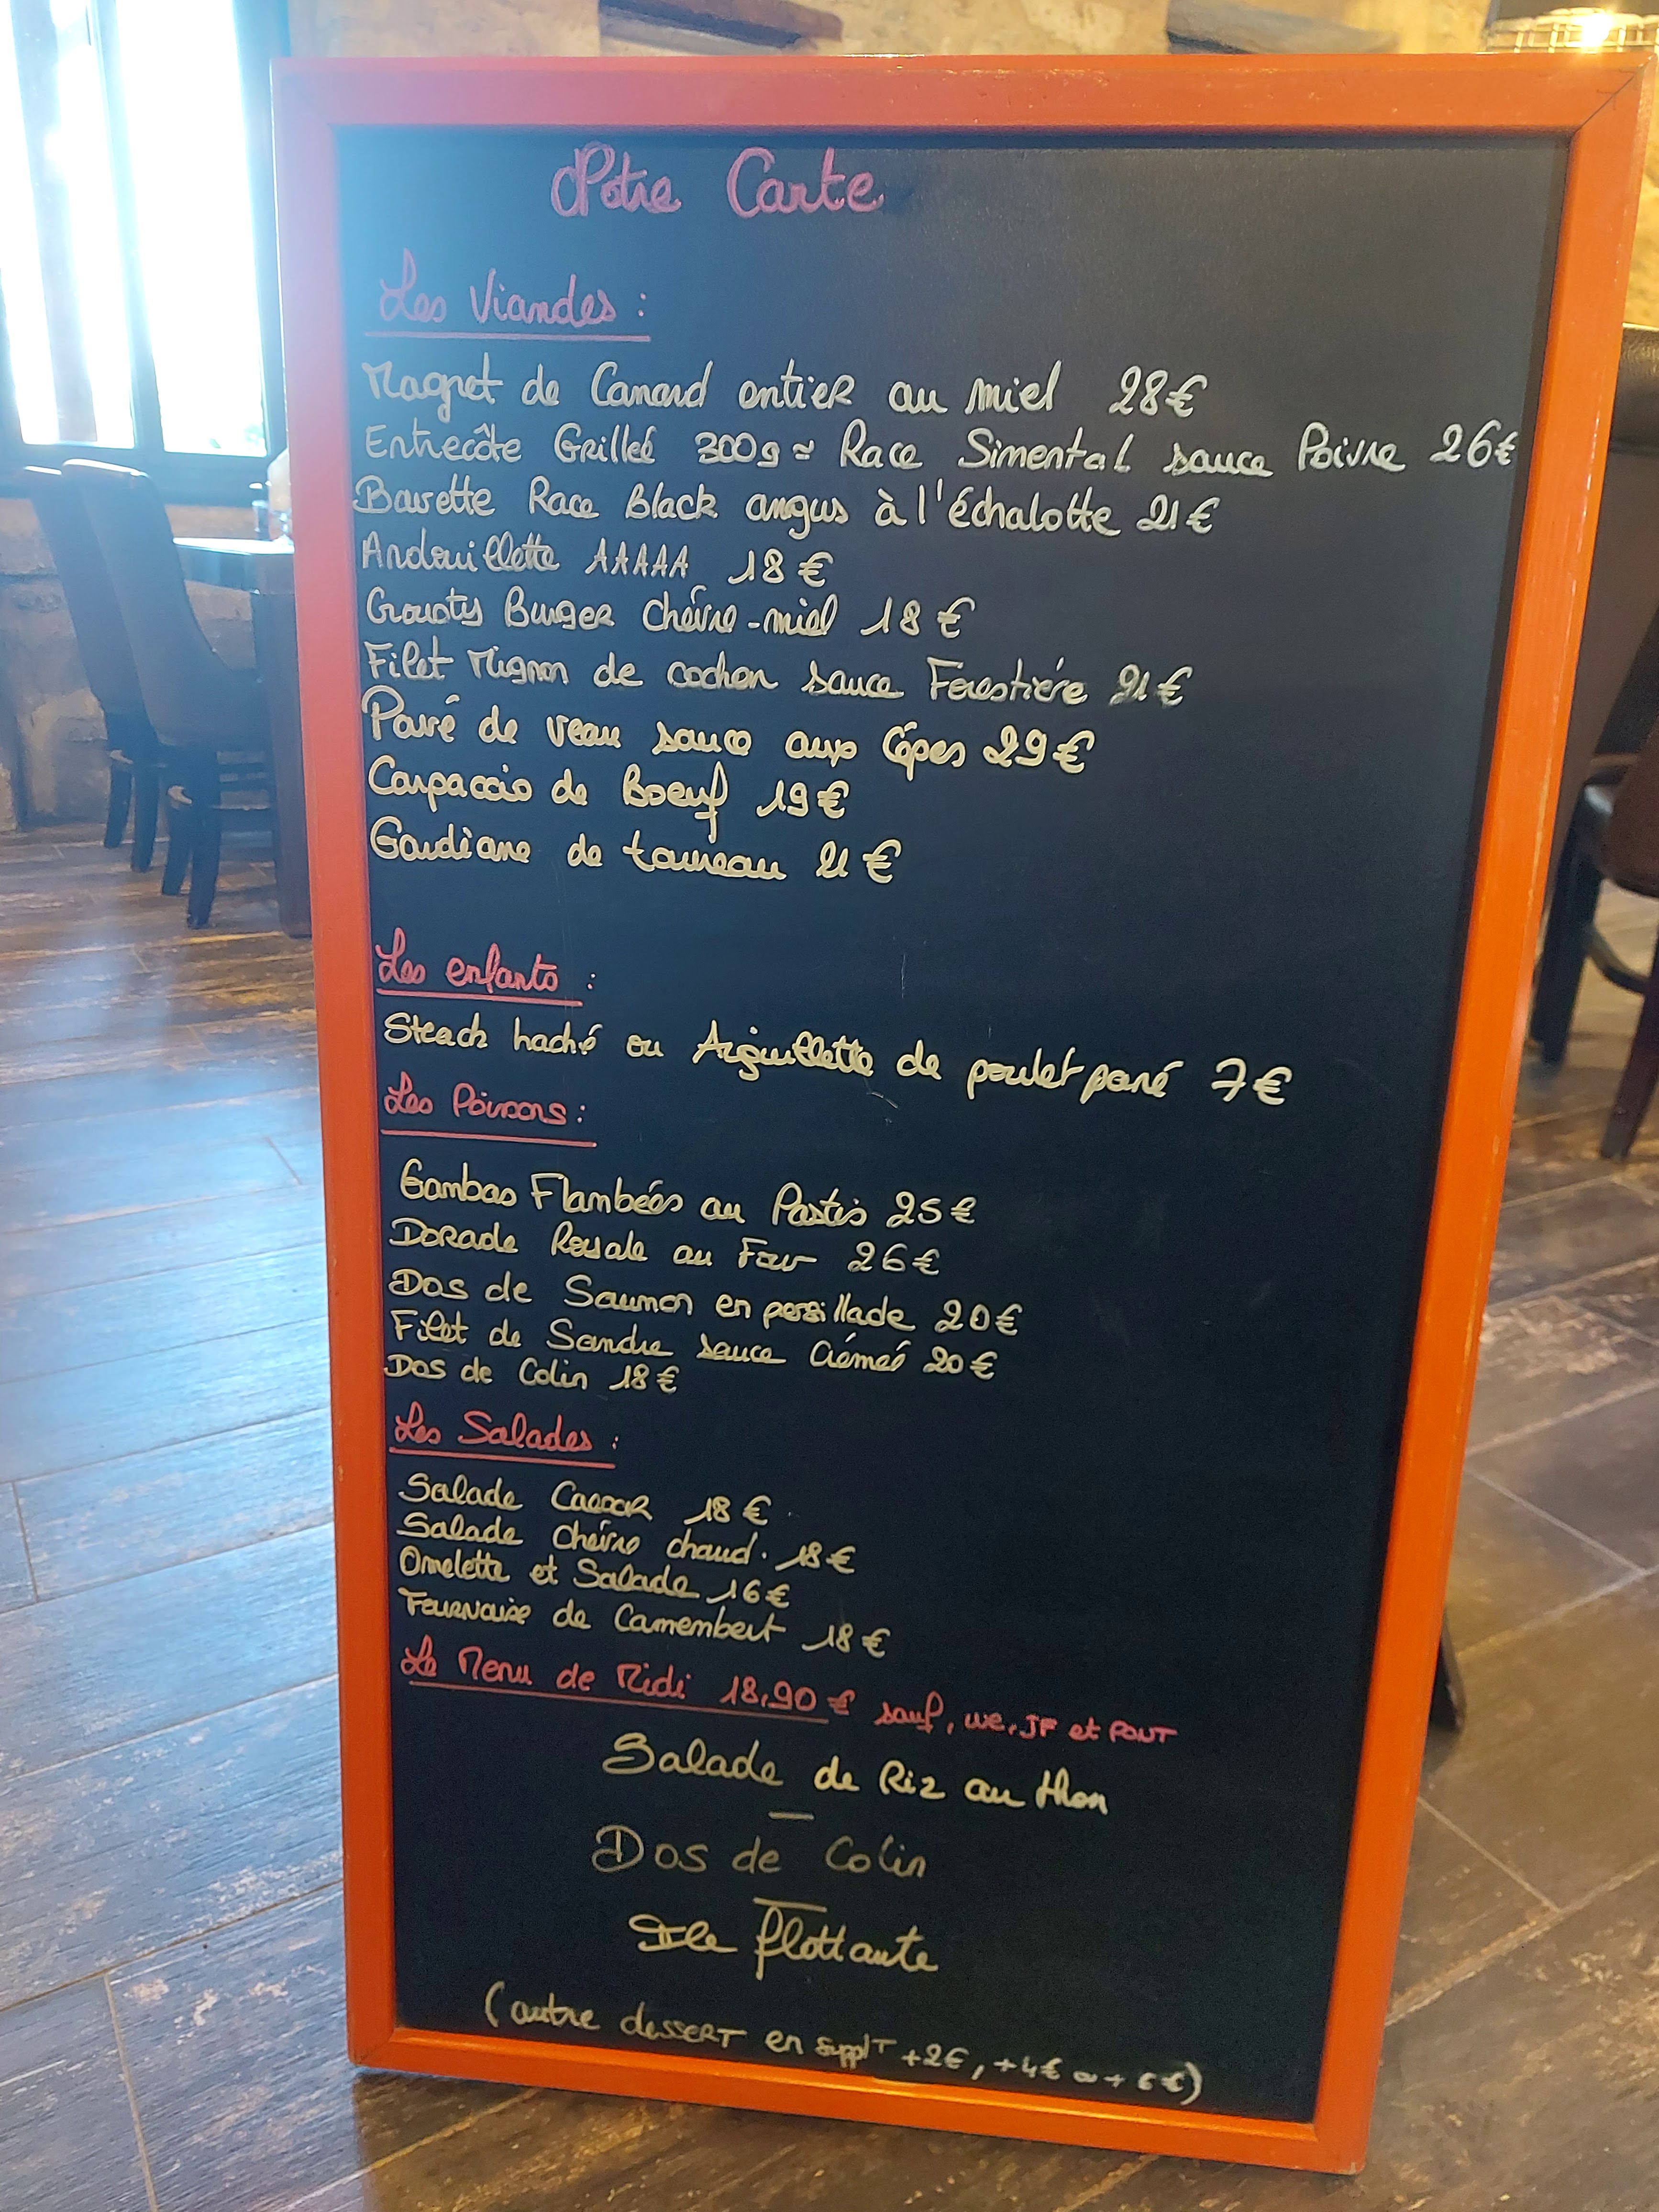 Notre Carte
Les Viandes :
Magret de Canard entier au miel 28€
Entrecôte Grilleé 300g ≈ Race Simental sauce Poivre 26€
Bavette Race Black angus à l'échalotte 21€
Andouillette AAAAA 18€
Crousty Burger Chèvre-miel 18€
Filet Mignon de cochon sauce Forestière 21€
Pavé de veau sauce aux Cèpes 29€
Carpaccio de Boeuf 19€
Gardiane de taureau 21€
Les enfants :
Steack haché ou Aiguillette de poulet pané 7€
Les Poissons :
Gambas Flambées au Pastis 25€
Dorade Royale au Four 26€
Dos de Saumon en persillade 20€
Filet de Sandre sauce Crémeé 20€
Dos de Colin 18€
Les Salades :
Salade Caesar 18€
Salade Chèvre chaud. 18€
Omelette et Salade 16€
Fournaise de Camembert 18€
Le Menu de Midi 18,90€ sauf, we, JF et PONT
Salade de Riz au thon
Dos de Colin
Ile flottante
(autre dessert en supplT +2€, +4€ ou + 6€)